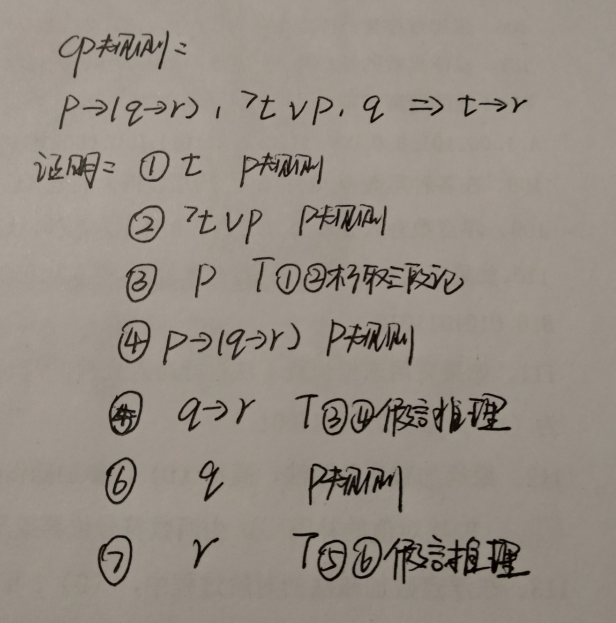 CP规则:
P→(q→r), ¬t∨p, q ⇒ t→r
证明: ① t P规则
② ¬t∨p P规则
③ P T①②析取三段论
④ P→(q→r) P规则
⑤ q→r T③④假言推理
⑥ q P规则
⑦ r T⑤⑥假言推理